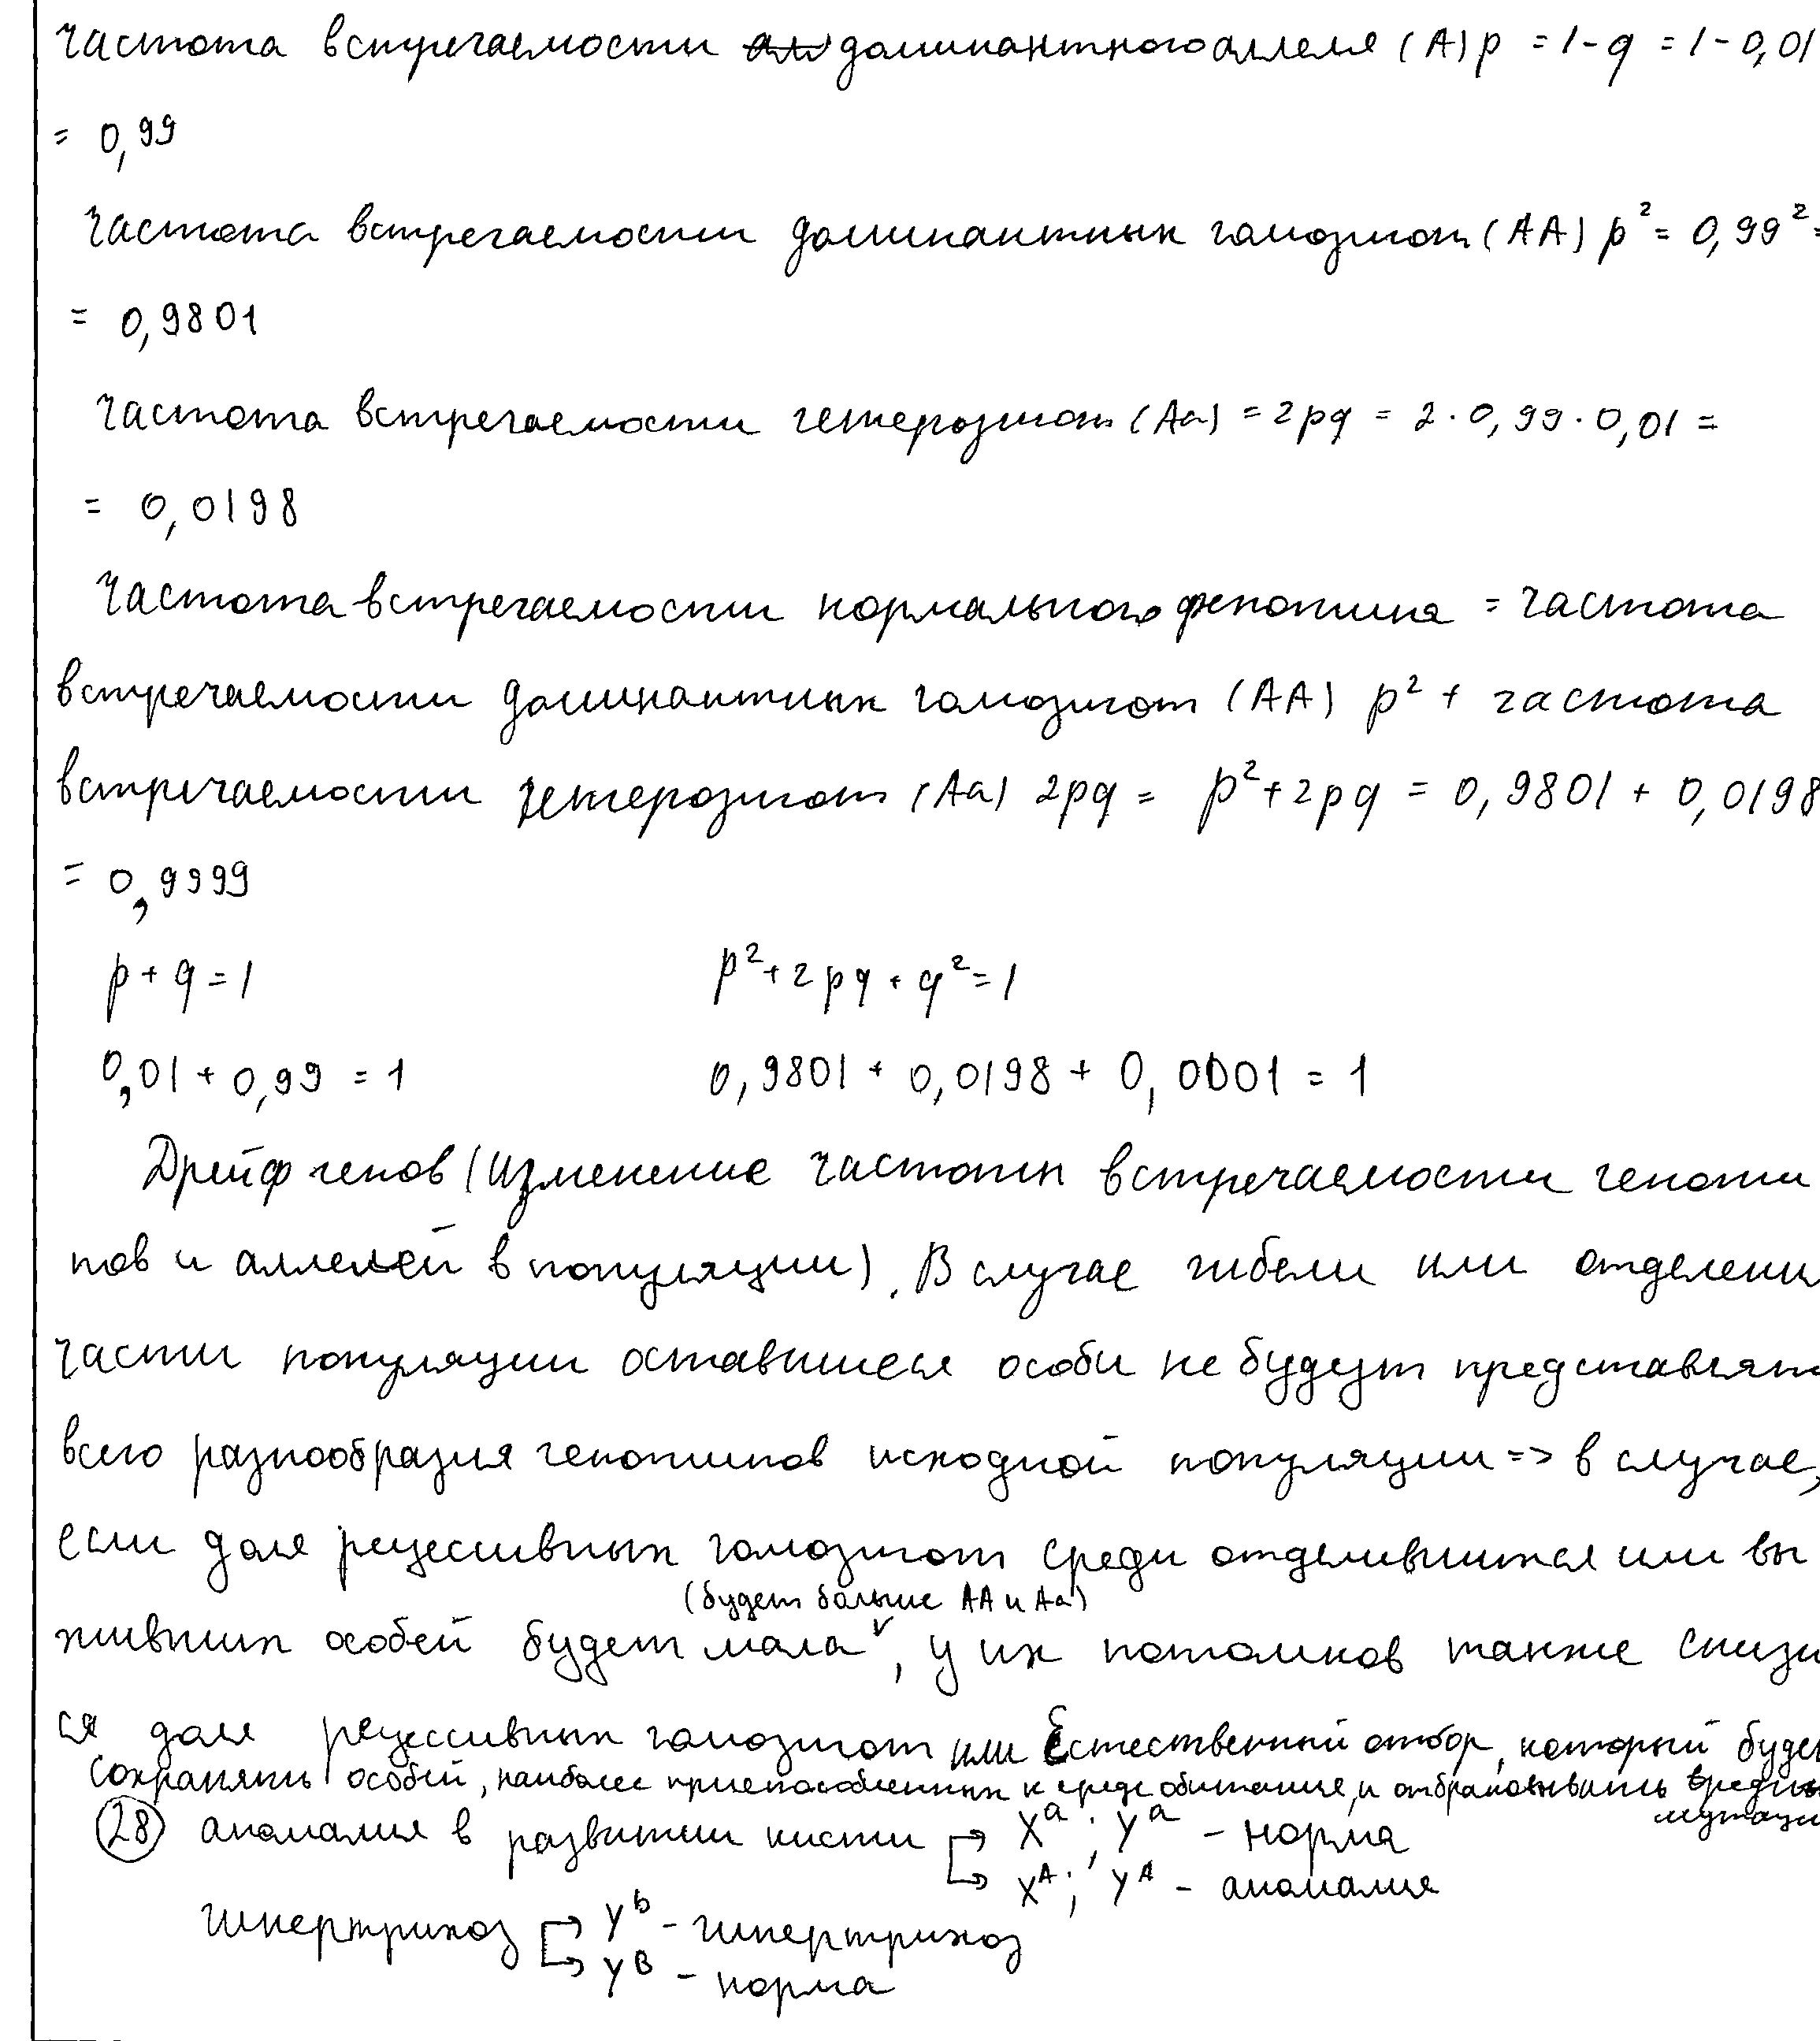 Частота встречаемости доминантного аллеля (A) p = 1 - q = 1 - 0,01
= 0,99
Частота встречаемости доминантных гомозигот (AA) p² = 0,99² =
= 0,9801
Частота встречаемости гетерозигот (Aa) = 2pq = 2 · 0,99 · 0,01 =
= 0,0198
Частота встречаемости нормального фенотипа = частота
встречаемости доминантных гомозигот (AA) p² + частота
встречаемости гетерозигот (Aa) 2pq = p² + 2pq = 0,9801 + 0,0198
= 0,9999
p + q = 1 p² + 2pq + q² = 1
0,01 + 0,99 = 1 0,9801 + 0,0198 + 0,0001 = 1
Дрейф генов (изменение частоты встречаемости геноти
пов и аллелей в популяции). В случае гибели или отделени
части популяции оставшиеся особи не будут представлят
всего разнообразия генотипов исходной популяции => в случае,
если доля рецессивных гомозигот среди отделившихся или вы
(будет больше AA и Aa)
живших особей будет мала ᵛ, у их потомков также снизи
ся доля рецессивных гомозигот или Естественный отбор, который буде
сохранять особей, наиболее приспособленных к среде обитания, и отбраковывать вредны
мутаци
(28) аномалия в развитии кисти → Xᵃ ; Yᵃ - норма
→ Xᴬ ; Yᴬ - аномалия
гипертрихоз → Yᵇ - гипертрихоз
→ Yᴮ - норма